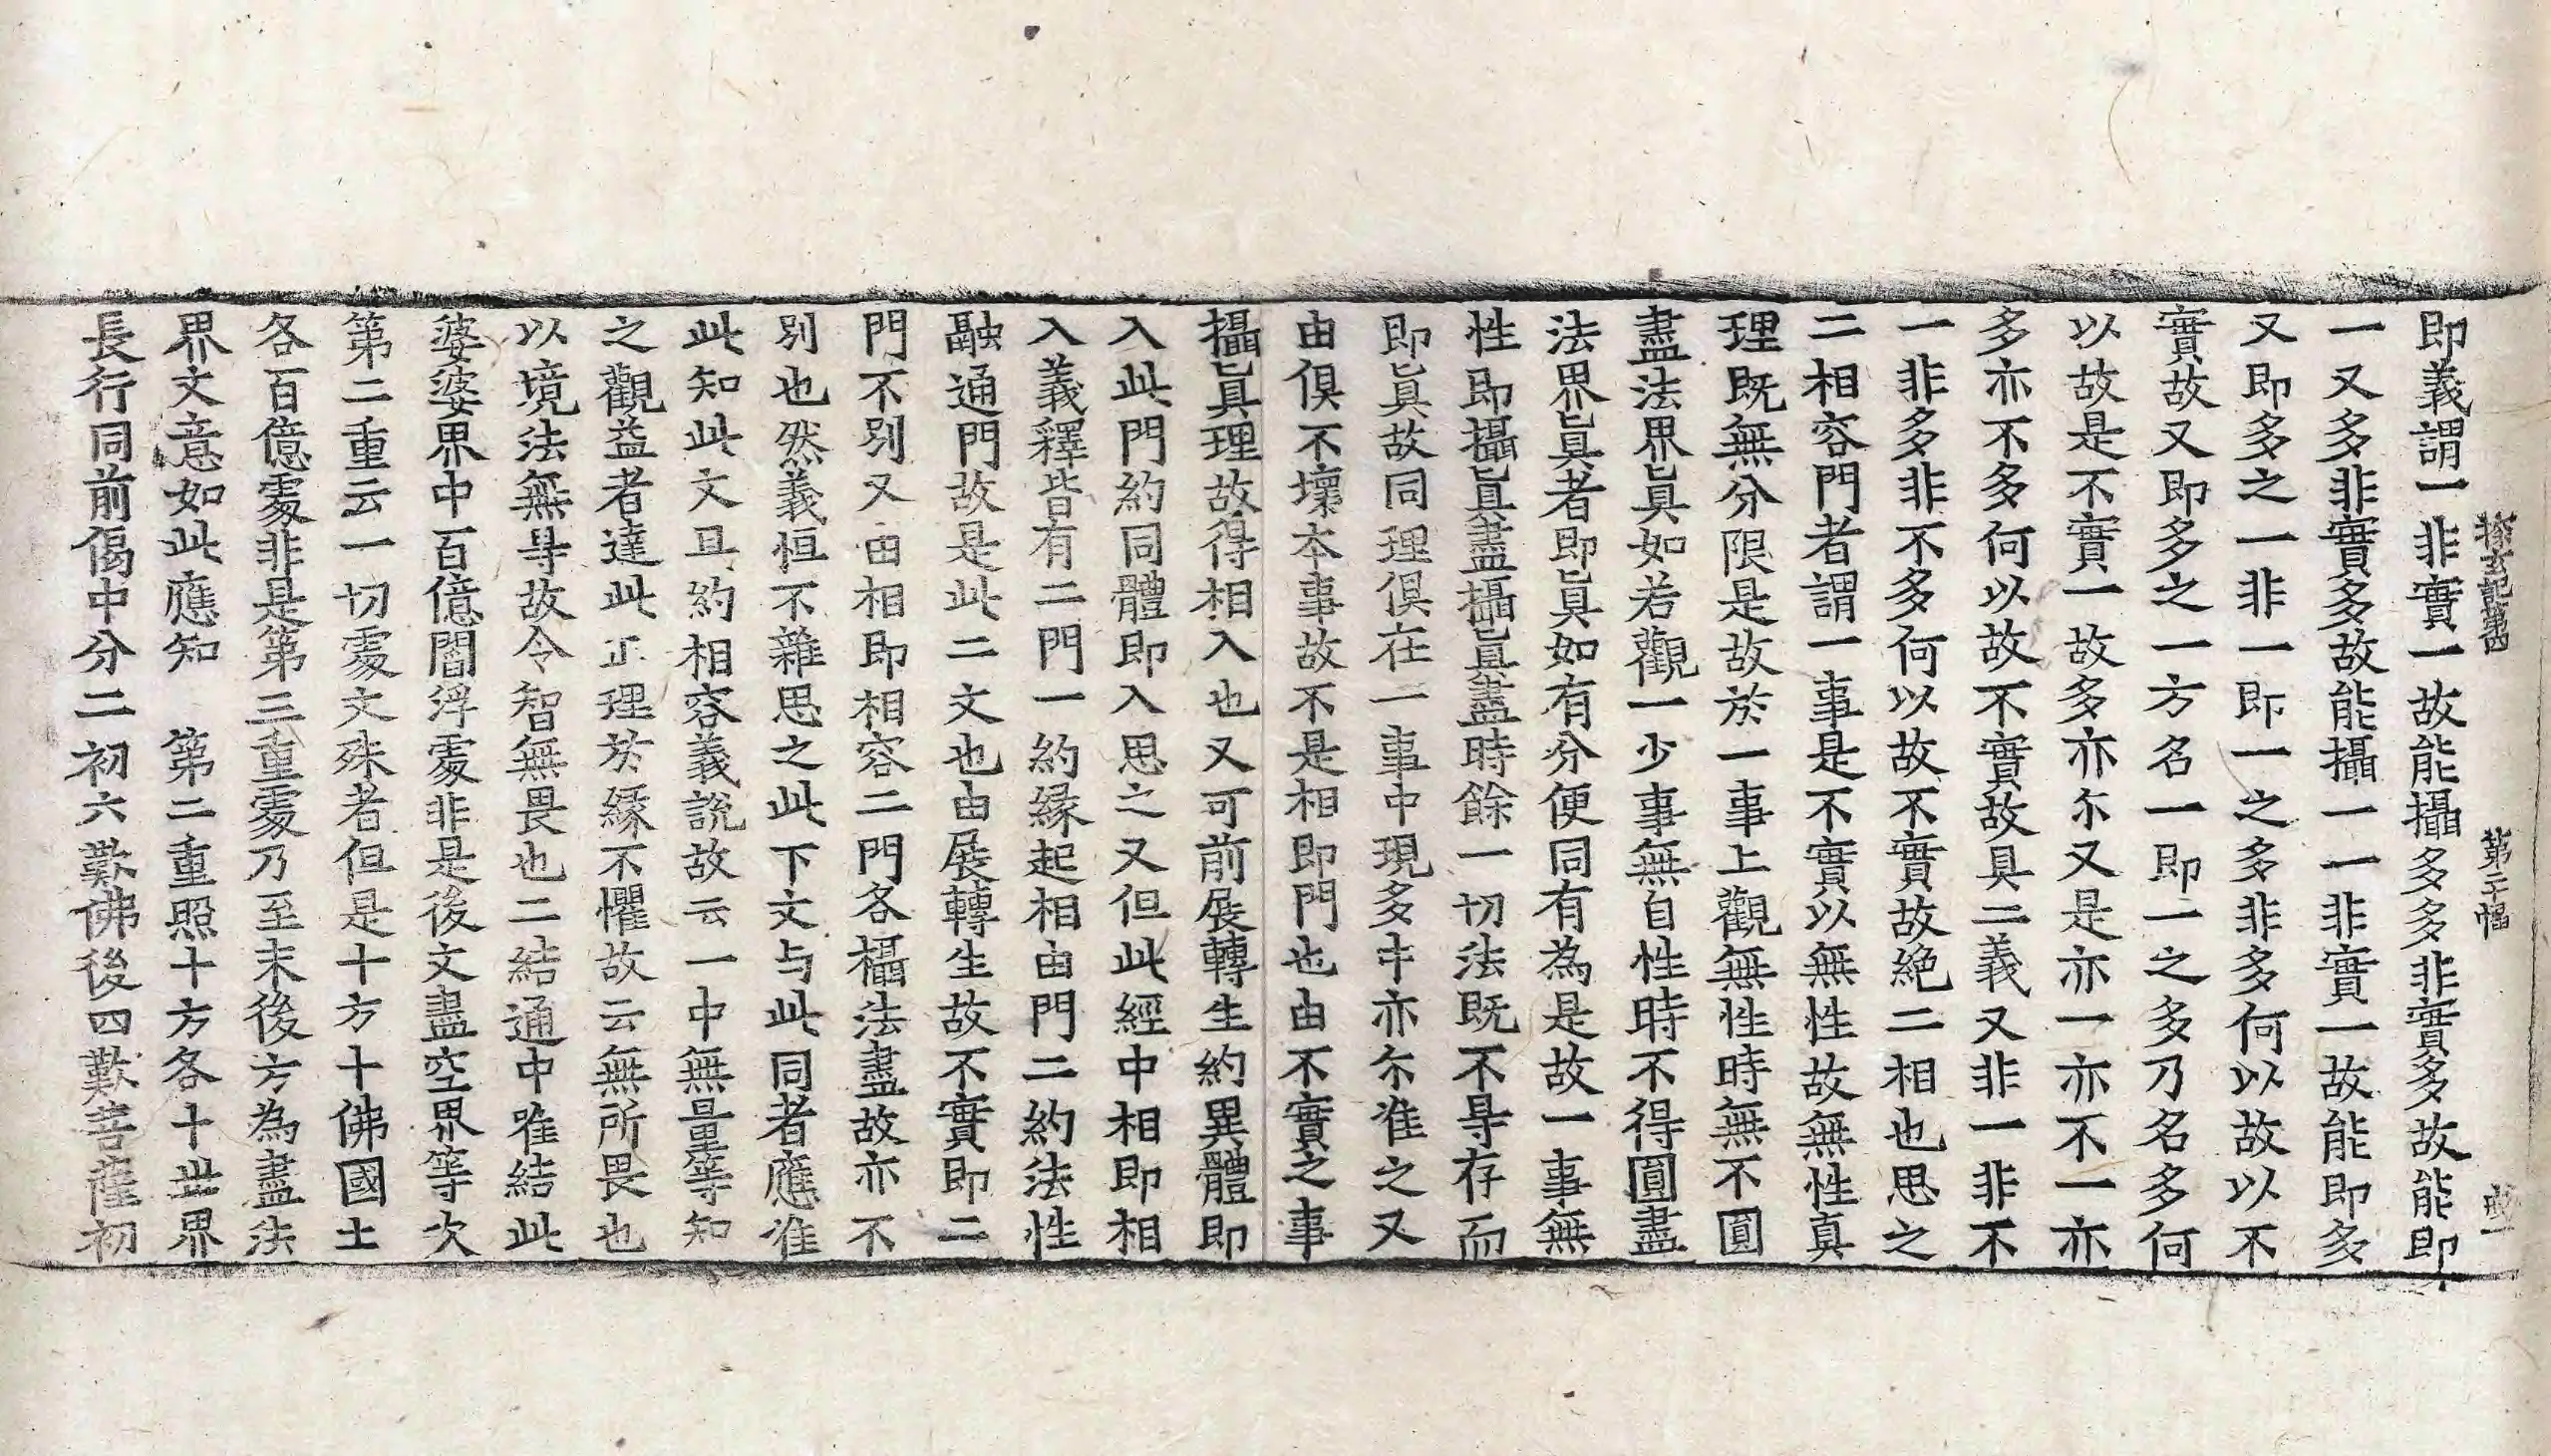 探玄記第四　第二十幅
即義謂一非實一故能攝多多非實多故能即
一又多非實多故能攝一一非實一故能即多
又即多之一非一即一之多非多何以故以不
實故又即多之一方名一即一之多乃名多何
以故是不實一故多亦尓又是亦一亦不一亦
多亦不多何以故不實故具二義又非一非不
一非多非不多何以故不實故絶二相也思之
二相容門者謂一事是不實以無性故無性真
理既無分限是故於一事上觀無性時無不圓
盡法界眞如若觀一少事無自性時不得圓盡
法界眞者即眞如有分便同有為是故一事無
性即攝眞盡攝眞盡時餘一切法既不㝵存而
即眞故同理俱在一事中現多中亦尓准之又
由俱不壞本事故不是相即門也由不實之事
攝眞理故得相入也又可前展轉生約異體即
入此門約同體即入思之又但此經中相即相
入義釋皆有二門一約縁起相由門二約法性
融通門故是此二文也由展轉生故不實即二
門不別又由相即相容二門各攝法盡故亦不
別也然義恒不雜思之此下文与此同者應准
此知此文且約相容義説故云一中無量等知
之觀益者達此正理於縁不懼故云無所畏也
以境法無㝵故令智無畏也二結通中唯結此
娑婆界中百億閻浮處非是後文盡空界等次
第二重云一切處文殊者但是十方十佛國土
各百億處非是第三重處乃至末後方為盡法
界文意如此應知　第二重照十方各十世界
長行同前偈中分二初六歎佛後四歎菩薩初